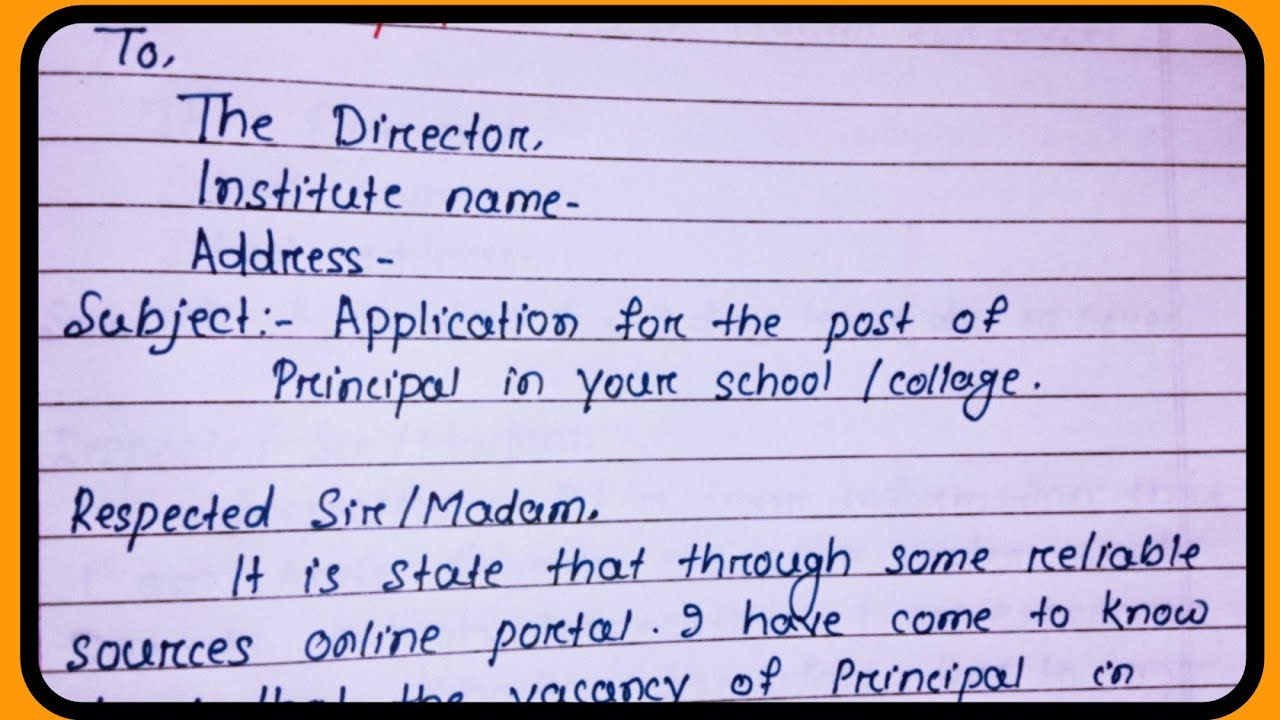 To,
The Director,
Institute name-
Address-
Subject:- Application for the post of
Principal in your school / collage.
Respected Sir/Madam,
It is state that through some reliable
sources online portal. I have come to know
that the vacancy of Principal in